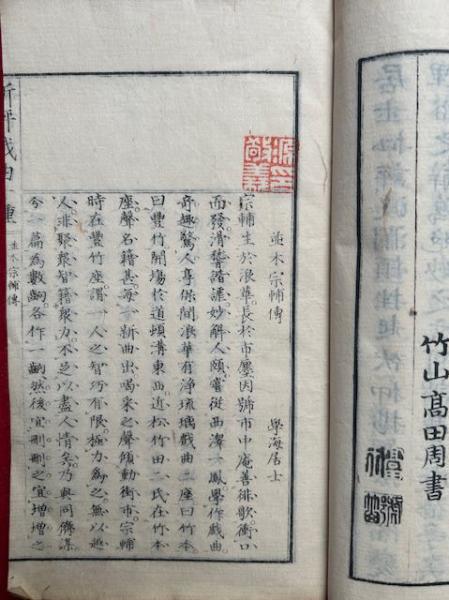 竹山高田周書
並木宗輔傳
學海居士
宗輔生於浪華長於市廛因號市中庵善徘歌衝口
而發滑稽諧謔妙解人頤嘗從西澤一鳳學作戲曲
奇趣驚人享保間浪華有淨琉璃戲曲二座曰竹本
曰豐竹開場於道頓溝東西近松竹田二氏在竹本
座聲名籍甚每一新曲出喝采之聲傾動衝市宗輔
時在豐竹座謂一人之智巧有限極力為之無以越
人非聚衆智籍衆力不足以盡人情矣乃與同儕謀
今一篇為數齣各作一齣然後宜刪刪之宜增增之
並木宗輔傳